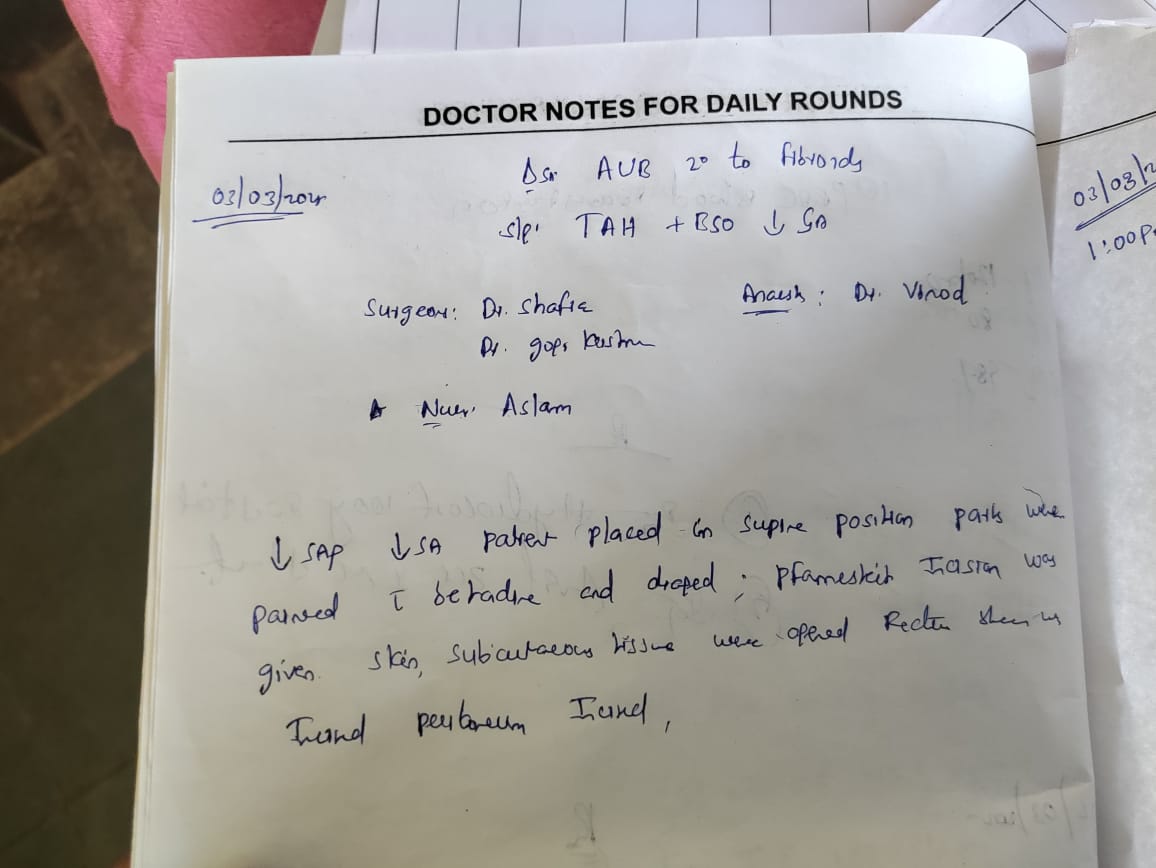 DOCTOR NOTES FOR DAILY ROUNDS
03/03/202
AUB 2° to fibroids
TAH + BSO ↓ GA
Surgeon: Dr. Shafia
Anaesh: Dr. Vinod
Dr. gopi
Aslam
↓ SAP ↓ SA patient placed in supine position parts were
painted c̄ betadine and draped; pfameskit Incision was
given. skin, subcutaneous tissue were opened Rectus
peritoneum
03/03/2
1:00P